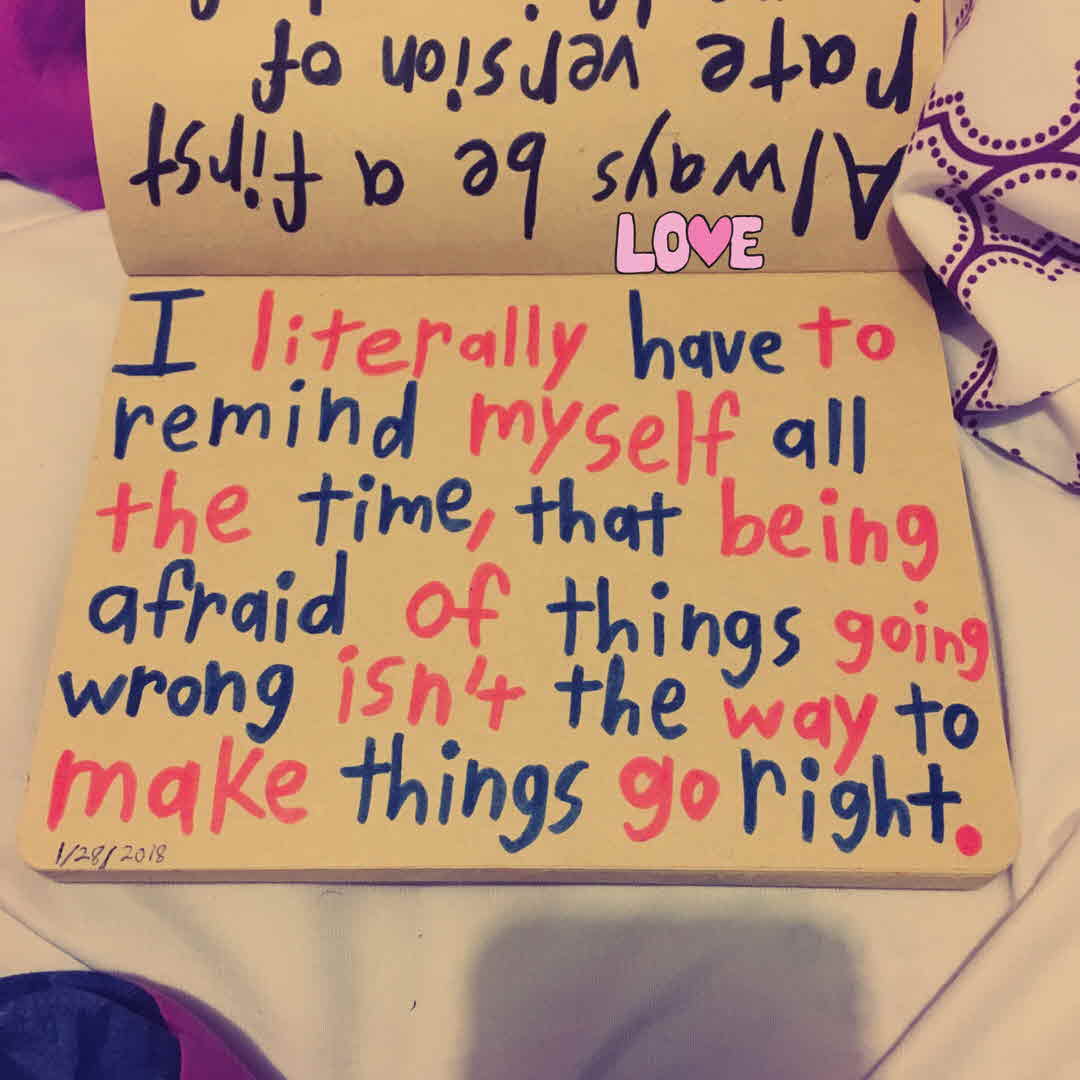 Always be a first
rate version of
LOVE
I literally have to
remind myself all
the time, that being
afraid of things going
wrong isn't the way to
make things go right.
1/28/2018